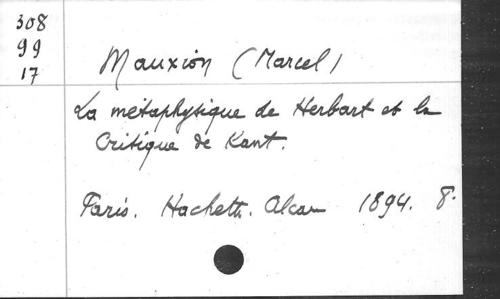 308
99
17
Mauxion (Marcel)
La métaphysique de Herbart et la
Critique de Kant.
Paris. Hachette. Alcan 1894. 8.